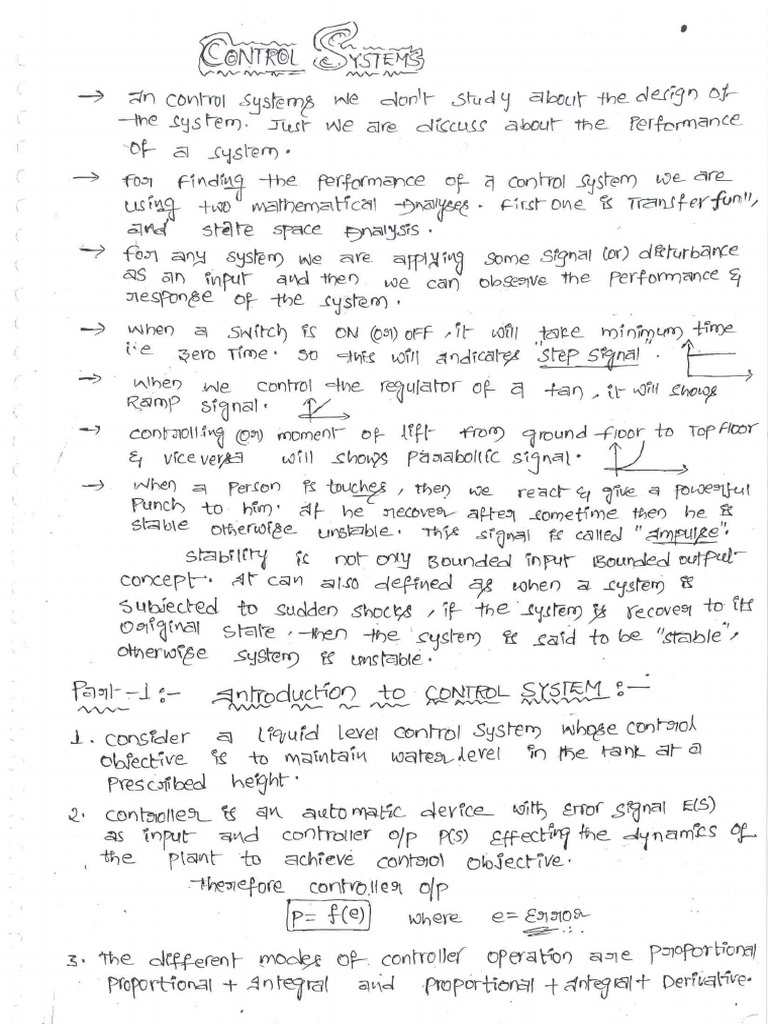 CONTROL SYSTEMS
→ In control systems we don't study about the design of
the system. Just we are discuss about the Performance
of a system.
→ For finding the performance of a control system we are
using two mathematical Analyses. First one is Transfer fun",
and state space Analysis.
→ For any system we are applying some signal (or) disturbance
as an input and then we can observe the performance &
response of the system.
→ When a switch is ON (or) OFF, it will take minimum time
i.e Zero Time. So this will indicates "Step Signal".
→ When we control the regulator of a fan, it will shows
Ramp signal.
→ controlling (or) moment of lift from ground floor to Top Floor
& vice versa will shows Parabollic signal.
→ When a Person is touches, then we react & give a powerful
Punch to him. If he recover after sometime then he is
stable otherwise unstable. This signal is called "Impulse".
Stability is not only Bounded input Bounded output
concept. It can also defined as when a system is
subjected to sudden shocks, if the system is recover to its
Original state, then the system is said to be "stable",
otherwise system is unstable.
Part-1:- Introduction to CONTROL SYSTEM:-
1. consider a liquid level control system whose control
objective is to maintain water level in the tank at a
Prescribed height.
2. controller is an automatic device with Error signal E(S)
as input and controller o/p P(S) Effecting the dynamics of
the plant to achieve control Objective.
Therefore controller o/p
P= f(e) where e= Error
3. The different modes of controller operation are Proportional
Proportional + Integral and Proportional + Integral + Derivative.